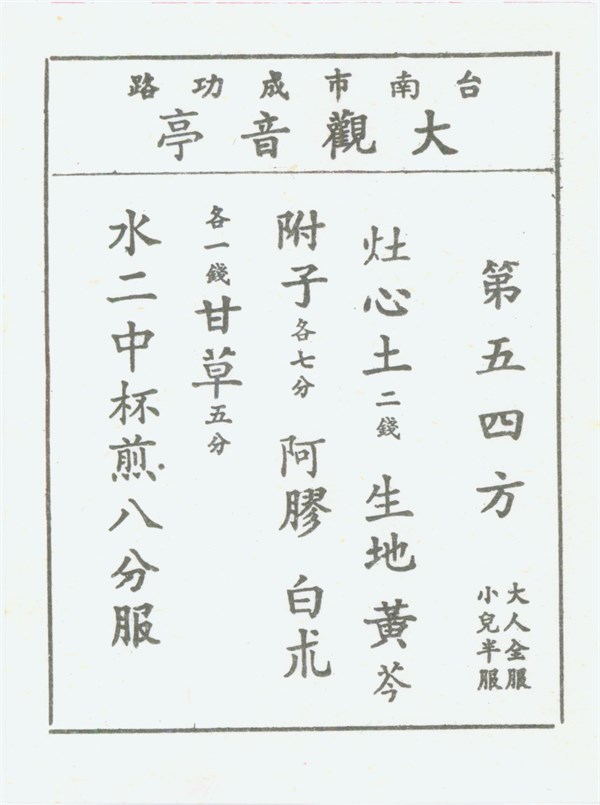 台南市成功路
大觀音亭
第五四方 大人全服
小兒半服
灶心土二錢 生地黃芩
附子各七分 阿膠 白朮
各一錢甘草五分
水二中杯煎八分服